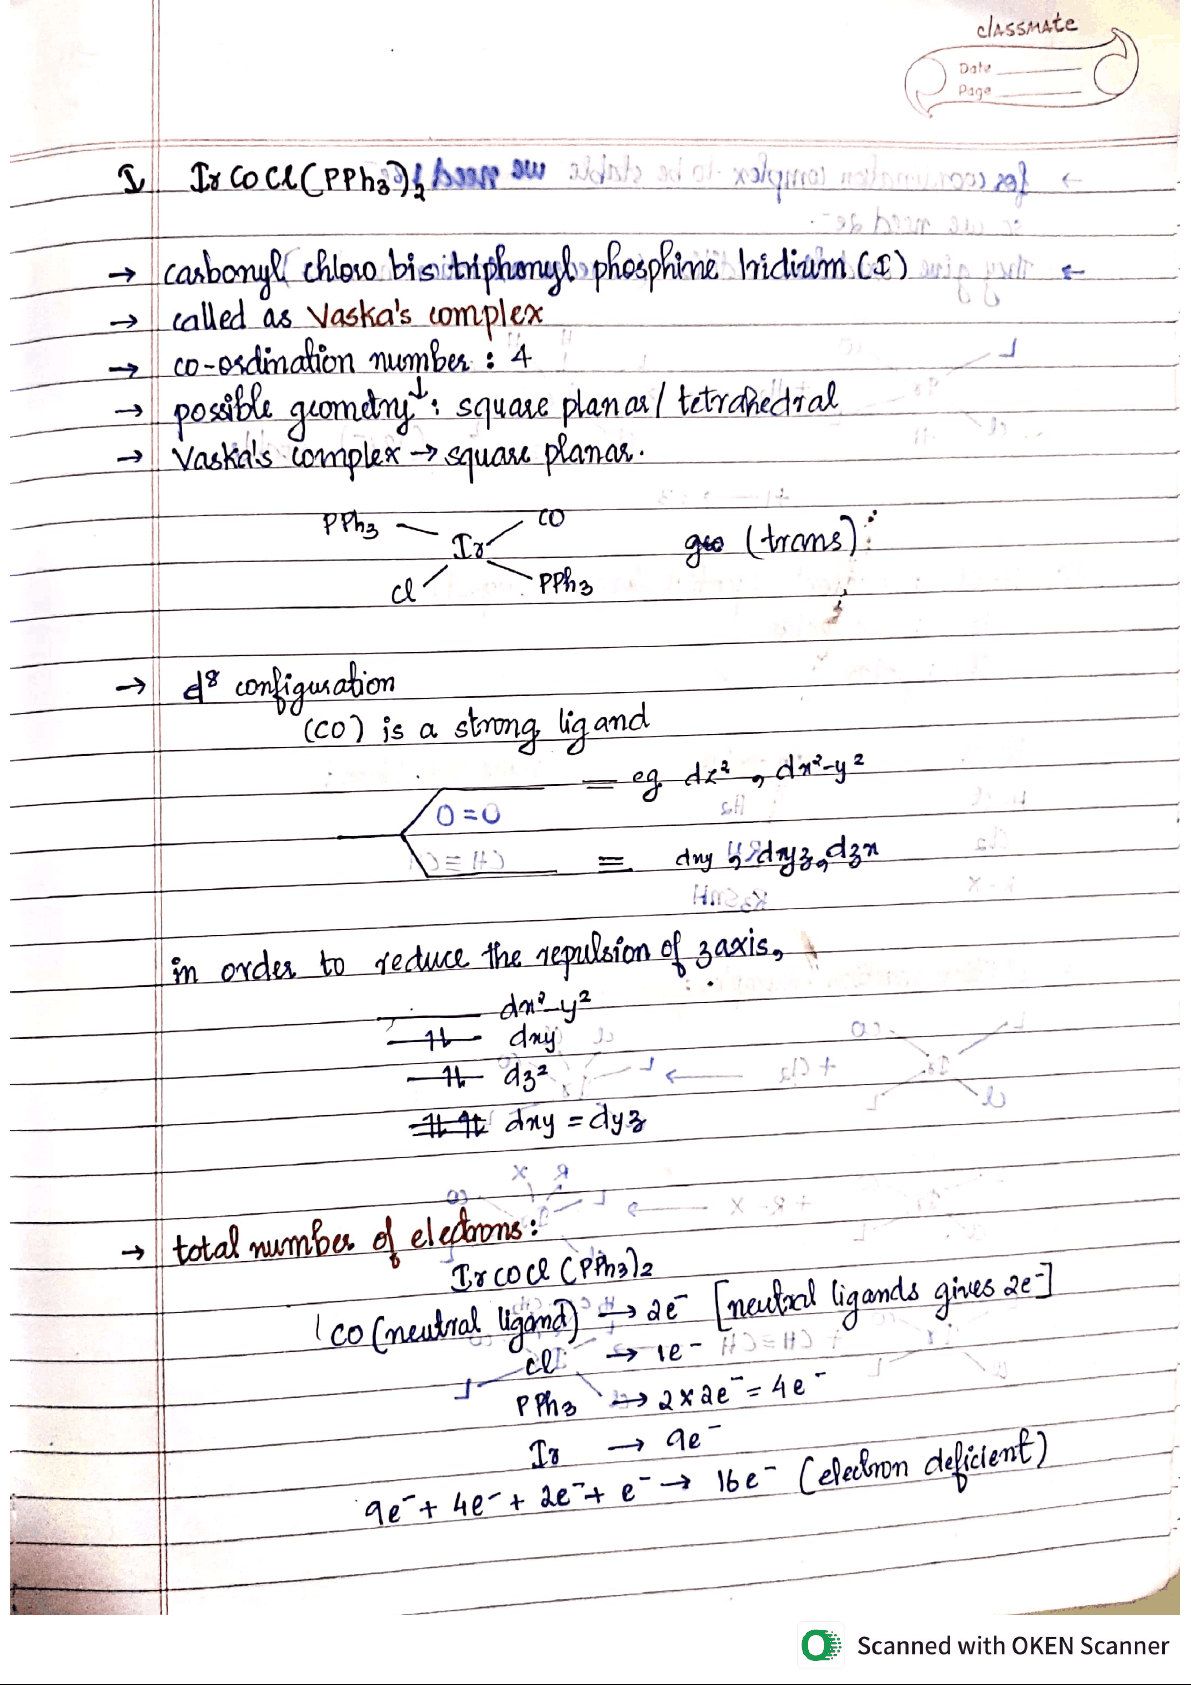 classmate
Date
Page
I IrCOCl(PPh3)2
→ carbonyl chloro bis triphenyl phosphine Iridium (I)
→ called as Vaska's complex
→ co-ordination number : 4
→ possible geometry ↓ : square planar / tetrahedral
→ Vaska's complex → square planar.
PPh3 CO
Ir geo (trans)
Cl PPh3
→ d8 configuration
(CO) is a strong ligand
= eg dz2, dx2-y2
O=O
≡ dxy, dyz, dzx
in order to reduce the repulsion of z axis,
dx2-y2
⥮ dxy
⥮ dz2
⥮ ⥮ dxy = dyz
→ total number of electrons:
IrCOCl(PPh3)2
CO (neutral ligand) → 2e- [neutral ligands gives 2e-]
Cl → 1e-
PPh3 → 2×2e- = 4e-
Ir → 9e-
9e- + 4e- + 2e- + e- → 16e- (electron deficient)
Scanned with OKEN Scanner